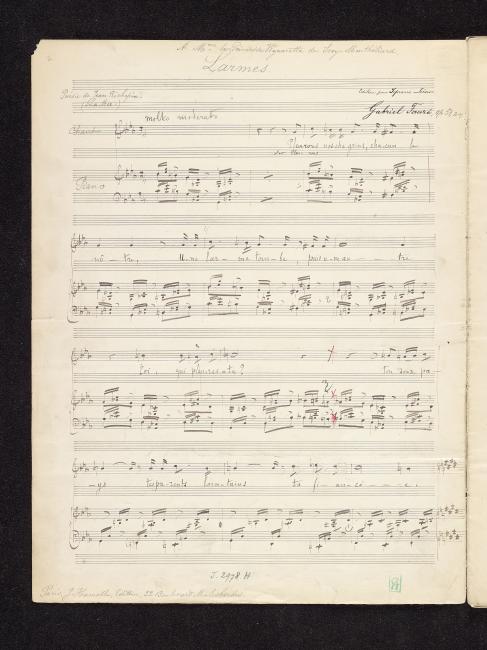 A Mme la Princesse Winnaretta de Scey-Montbéliard
Larmes
Poésie de Jean Richepin
(La Mer)
Edition pour Soprano ou Ténor
molto moderato
Gabriel Fauré, op. 51
Chant
Pleurons nos chagrins, chacun le
Piano
nô - tre, U - ne lar - me tom - be, puis u - ne au - tre
Toi, qui pleures-tu?
ton doux pa-
-ys tes parents lointains ta fi - an - cé - e.
J. 2978. H
Paris, J. Hamelle, Editeur, 22 Boulevard Malesherbes